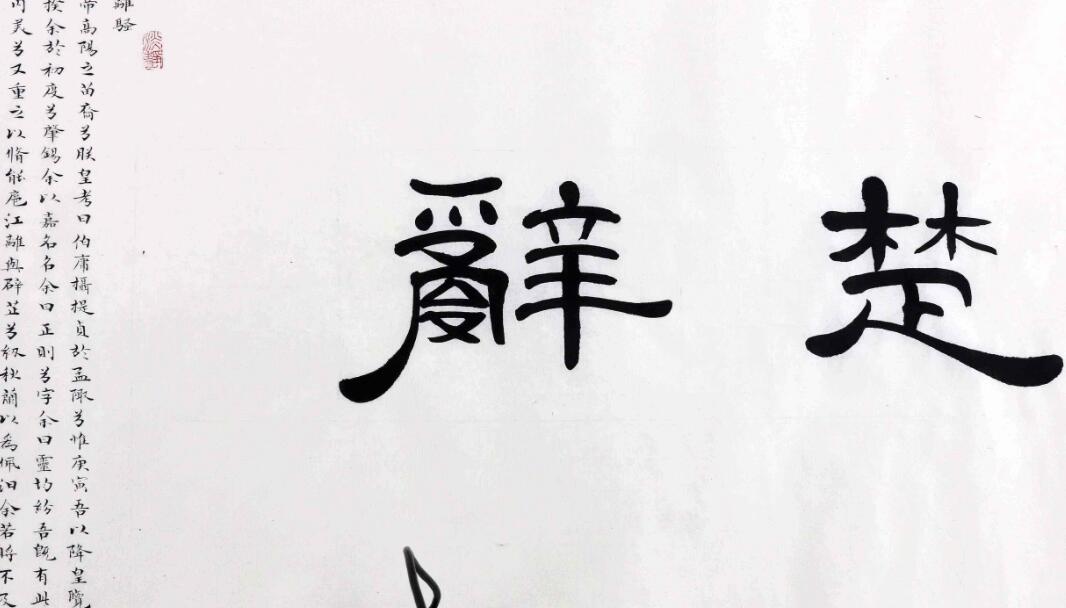 楚辭
離騷
帝高陽之苗裔兮朕皇考曰伯庸攝提貞於孟陬兮惟庚寅吾以降皇覽
揆余於初度兮肇錫余以嘉名名余曰正則兮字余曰靈均紛吾既有此
內美兮又重之以脩能扈江離與辟芷兮紉秋蘭以為佩汩余若將不及